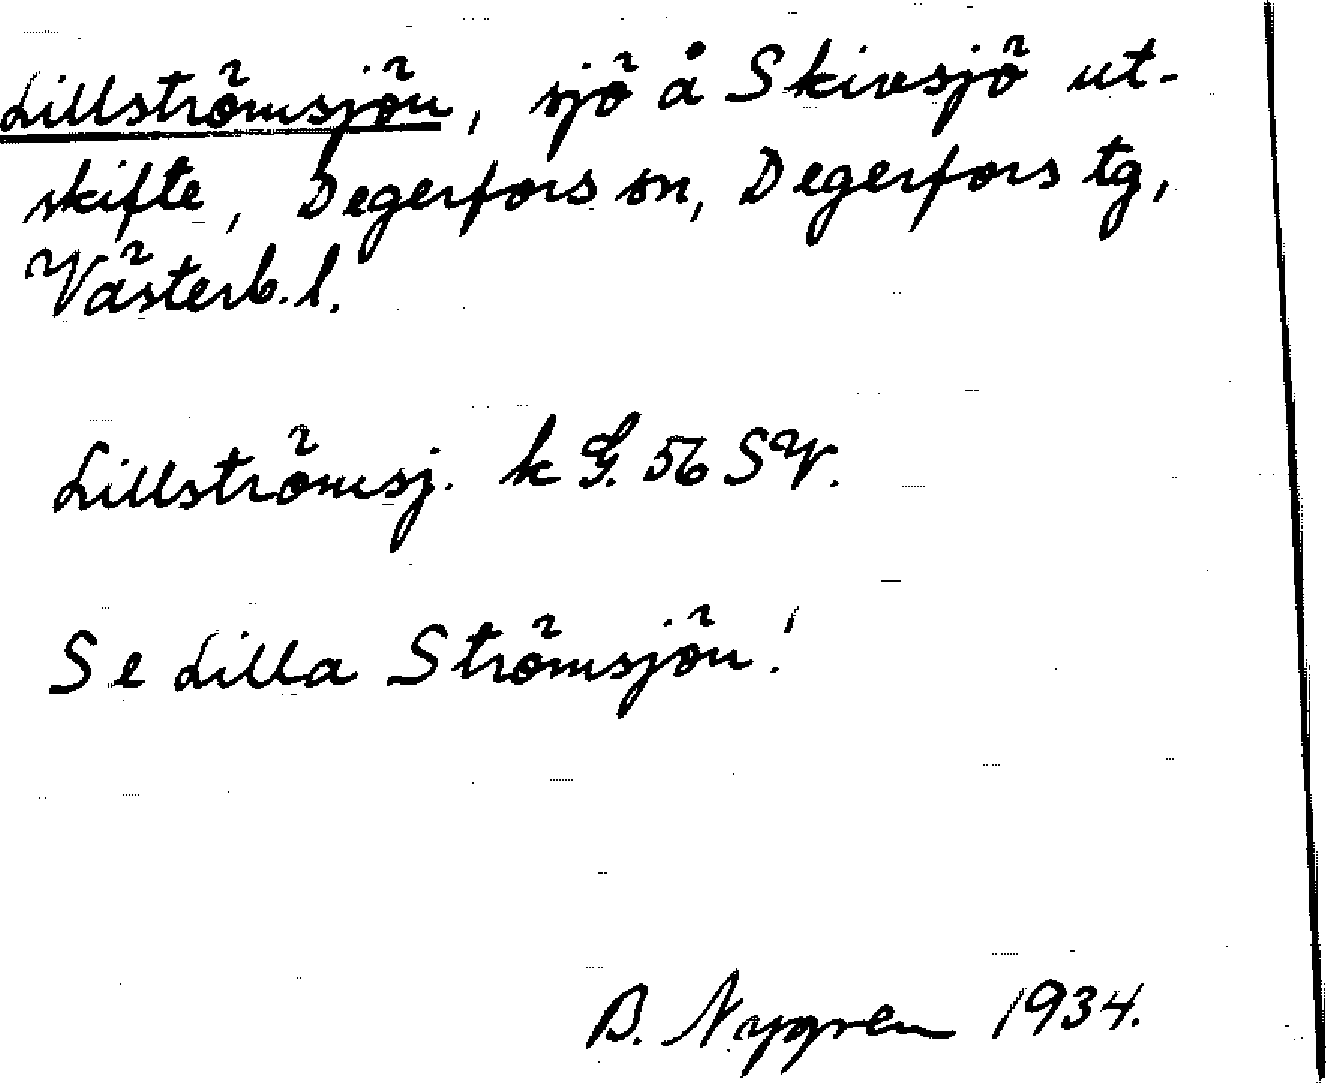 Lillströmsjön, sjö å Skivsjö ut-
skifte, Degerfors sn, Degerfors tg,
Västerb. l.
Lillströmsj. k G. 56 SV.
Se Lilla Strömsjön!
B. Nygren 1934.